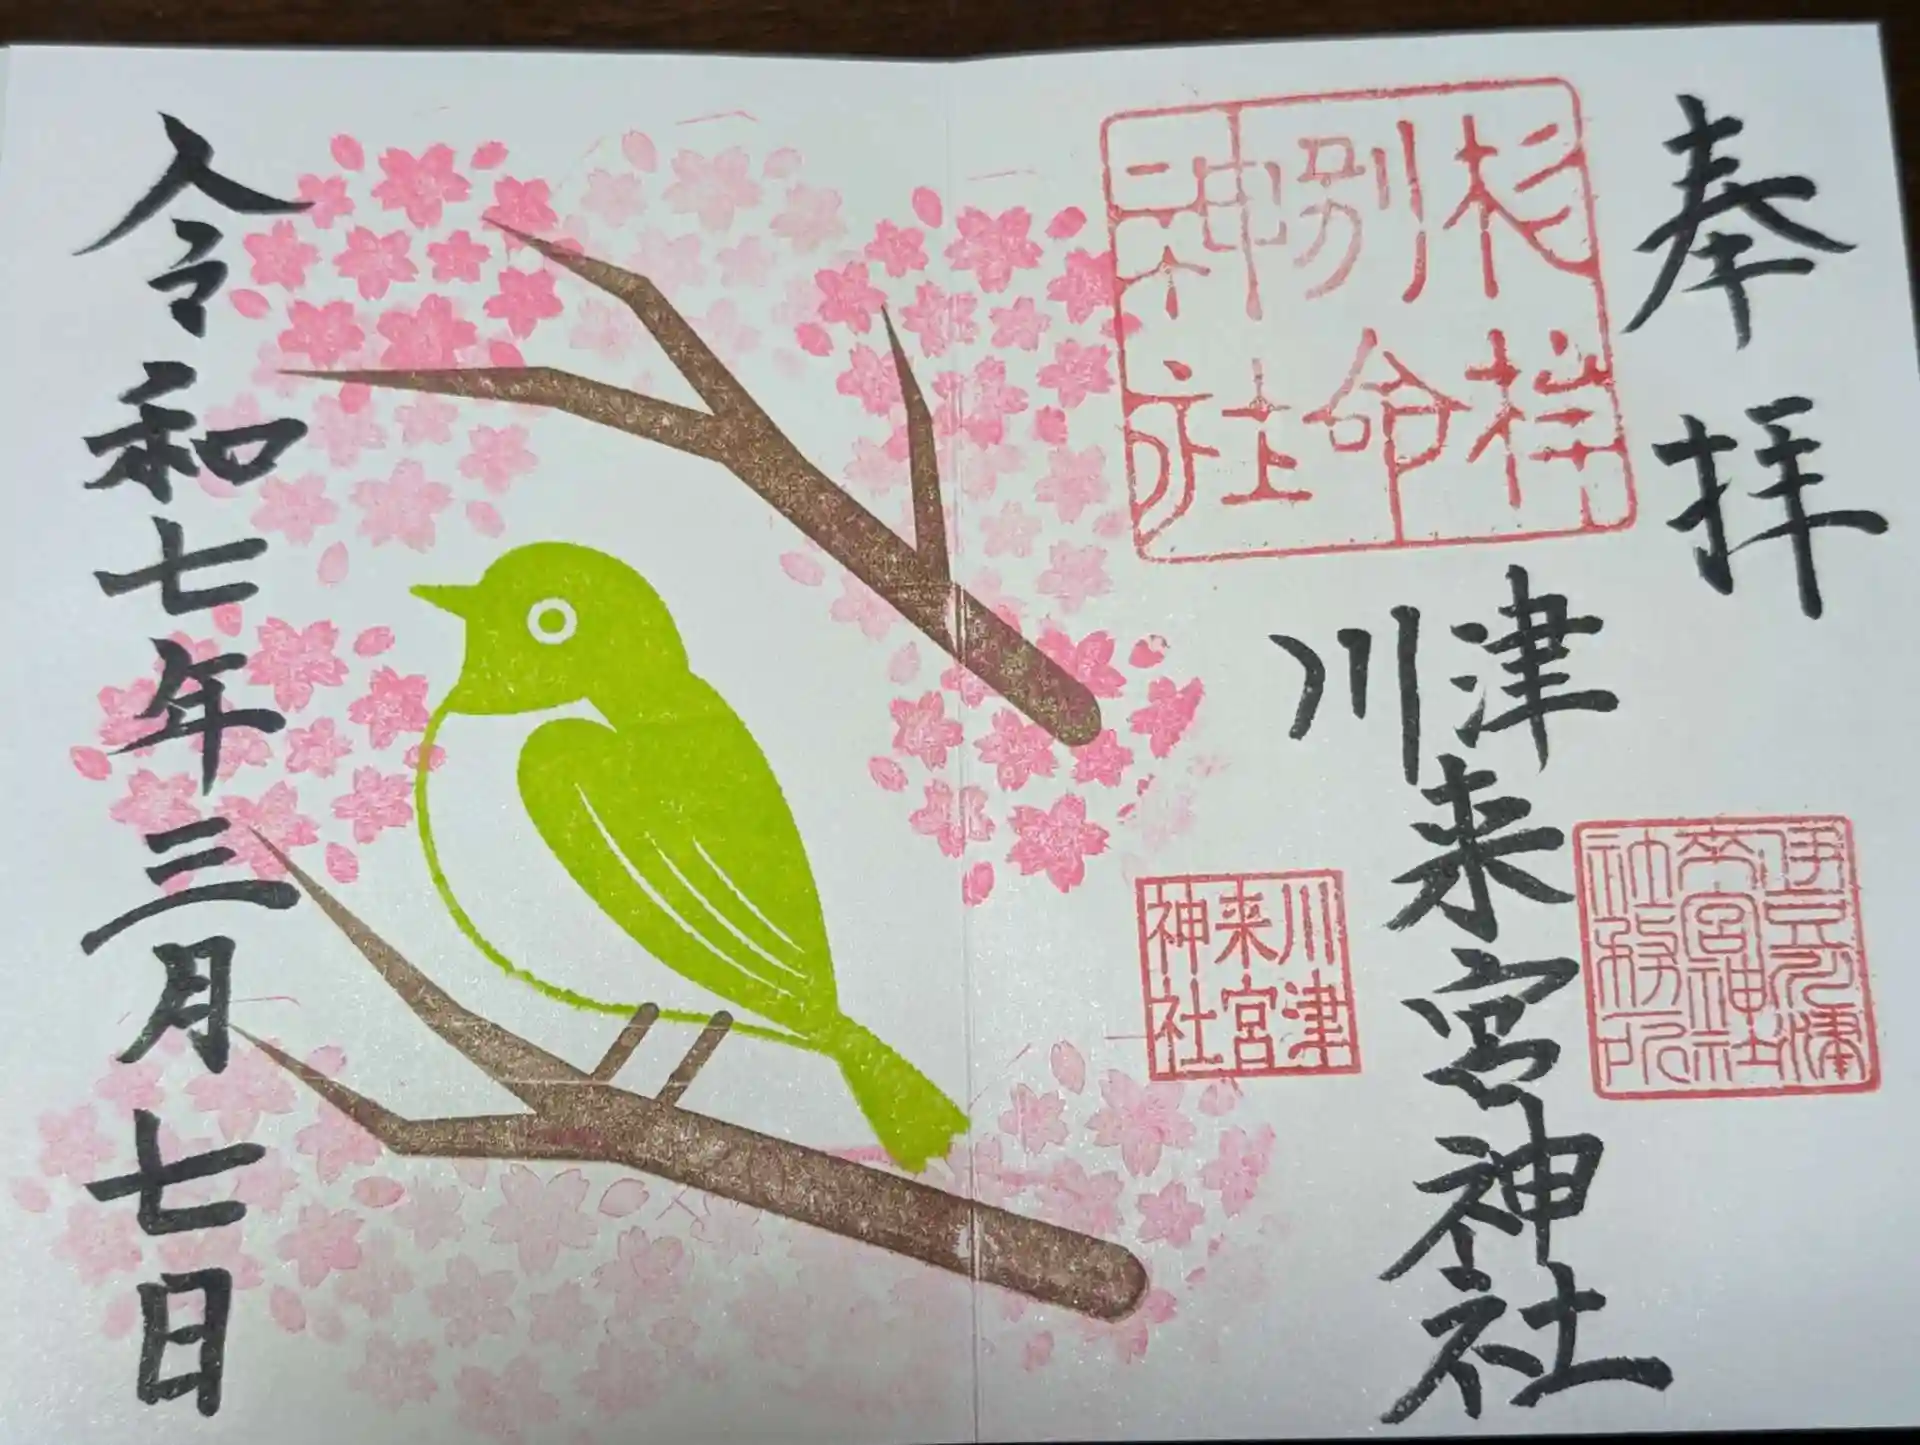 奉拝
杉桙
別命
神社
川津来宮神社
伊豆川津
来宮神社
社務所
川津
来宮
神社
令和七年三月七日